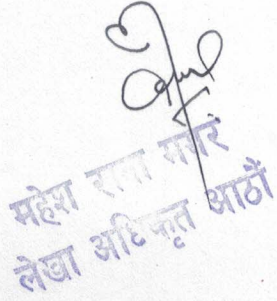 महेश राना मगर
लेखा अधिकृत आठौं